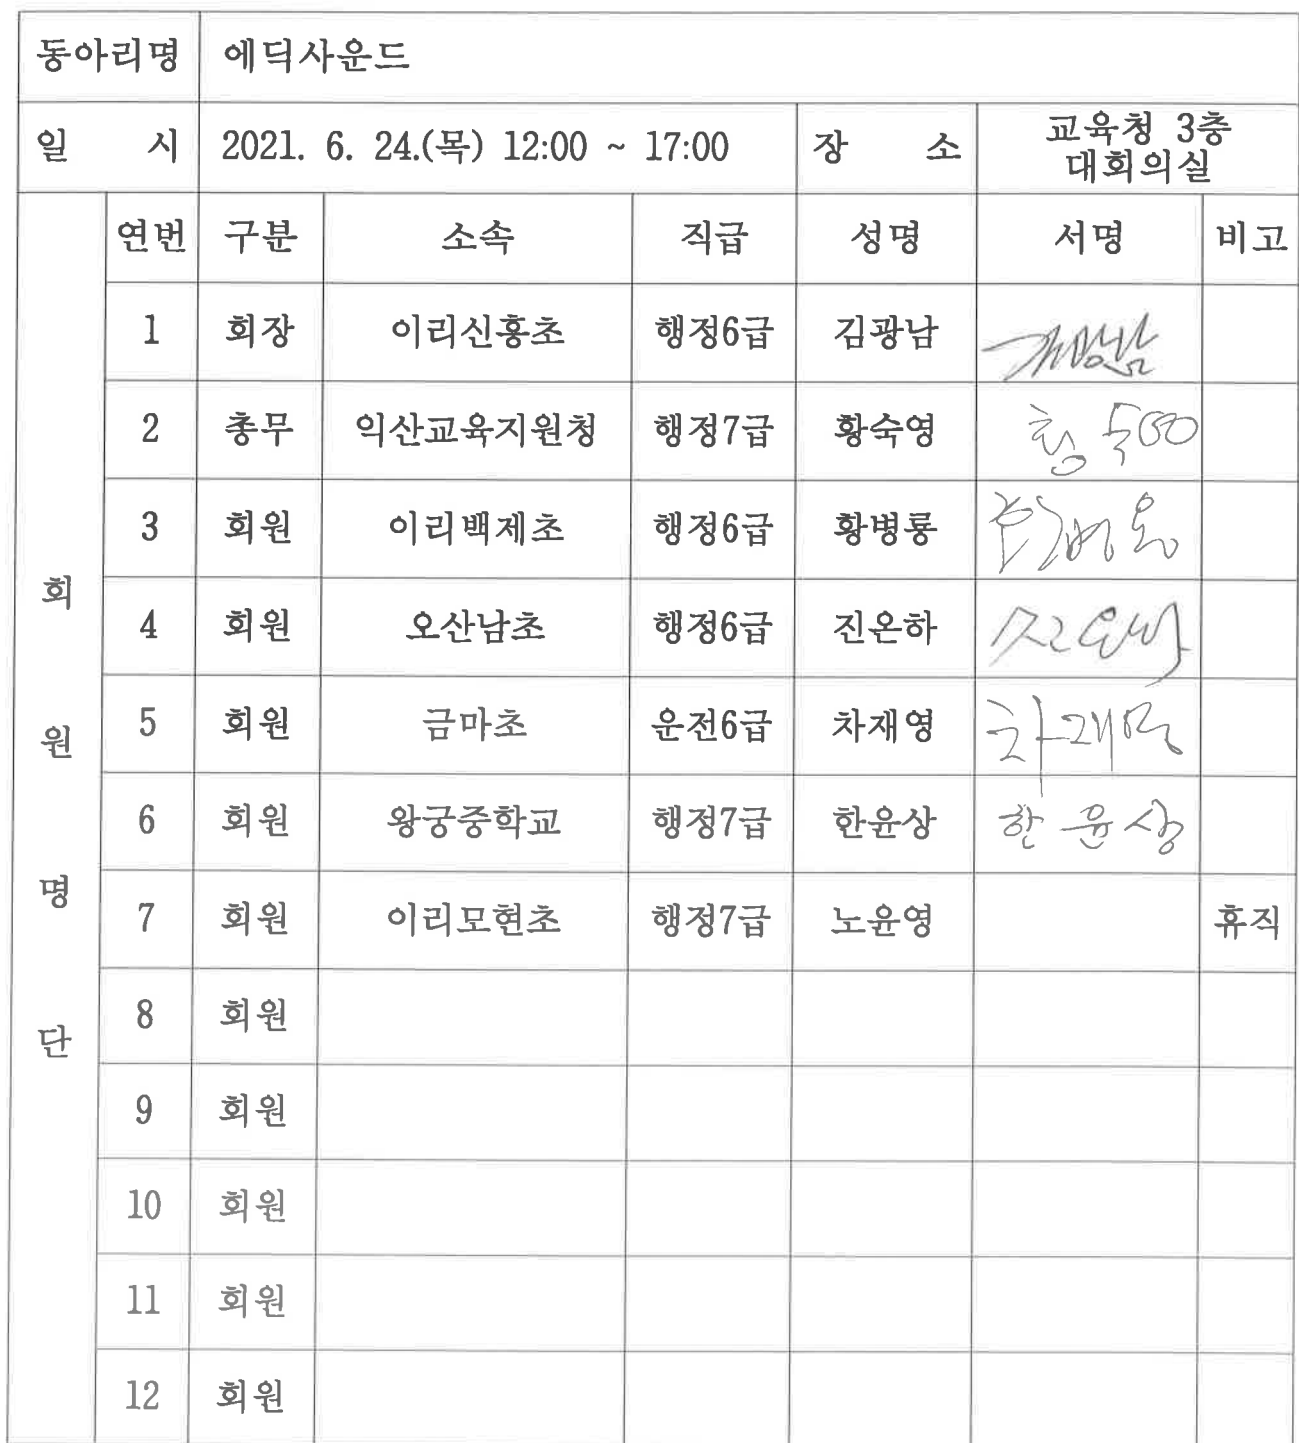 동아리명 에딕사운드
일 시 2021. 6. 24.(목) 12:00 ~ 17:00 장 소 교육청 3층
대회의실
회원명단
연번 구분 소속 직급 성명 서명 비고
1 회장 이리신흥초 행정6급 김광남 김광남
2 총무 익산교육지원청 행정7급 황숙영 황숙영
3 회원 이리백제초 행정6급 황병룡
4 회원 오산남초 행정6급 진온하 진온하
5 회원 금마초 운전6급 차재영 차재영
6 회원 왕궁중학교 행정7급 한윤상 한윤상
7 회원 이리모현초 행정7급 노윤영 휴직
8 회원
9 회원
10 회원
11 회원
12 회원